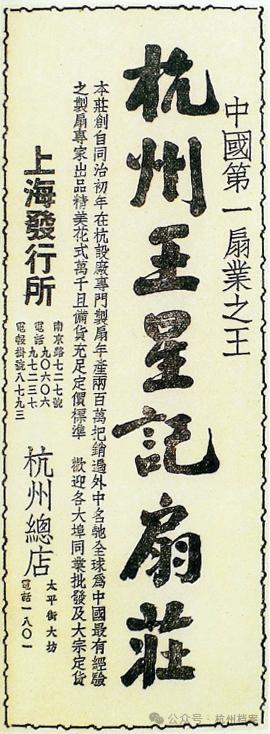 中國第一扇業之王
杭州王星記扇莊
本莊創自同治初年在杭設廠專門製扇年產兩百萬把銷遍外中名馳全球爲中國最有經驗
之製扇專家出品精美花式萬千且備貨充足定價標準 歡迎各大埠同業批發及大宗定貨
上海發行所
南京路七二七號
電話九〇六〇六
九七二三七
電報掛號八七九三
杭州總店
太平街大坊
電話一八〇一
公众号·杭州档案